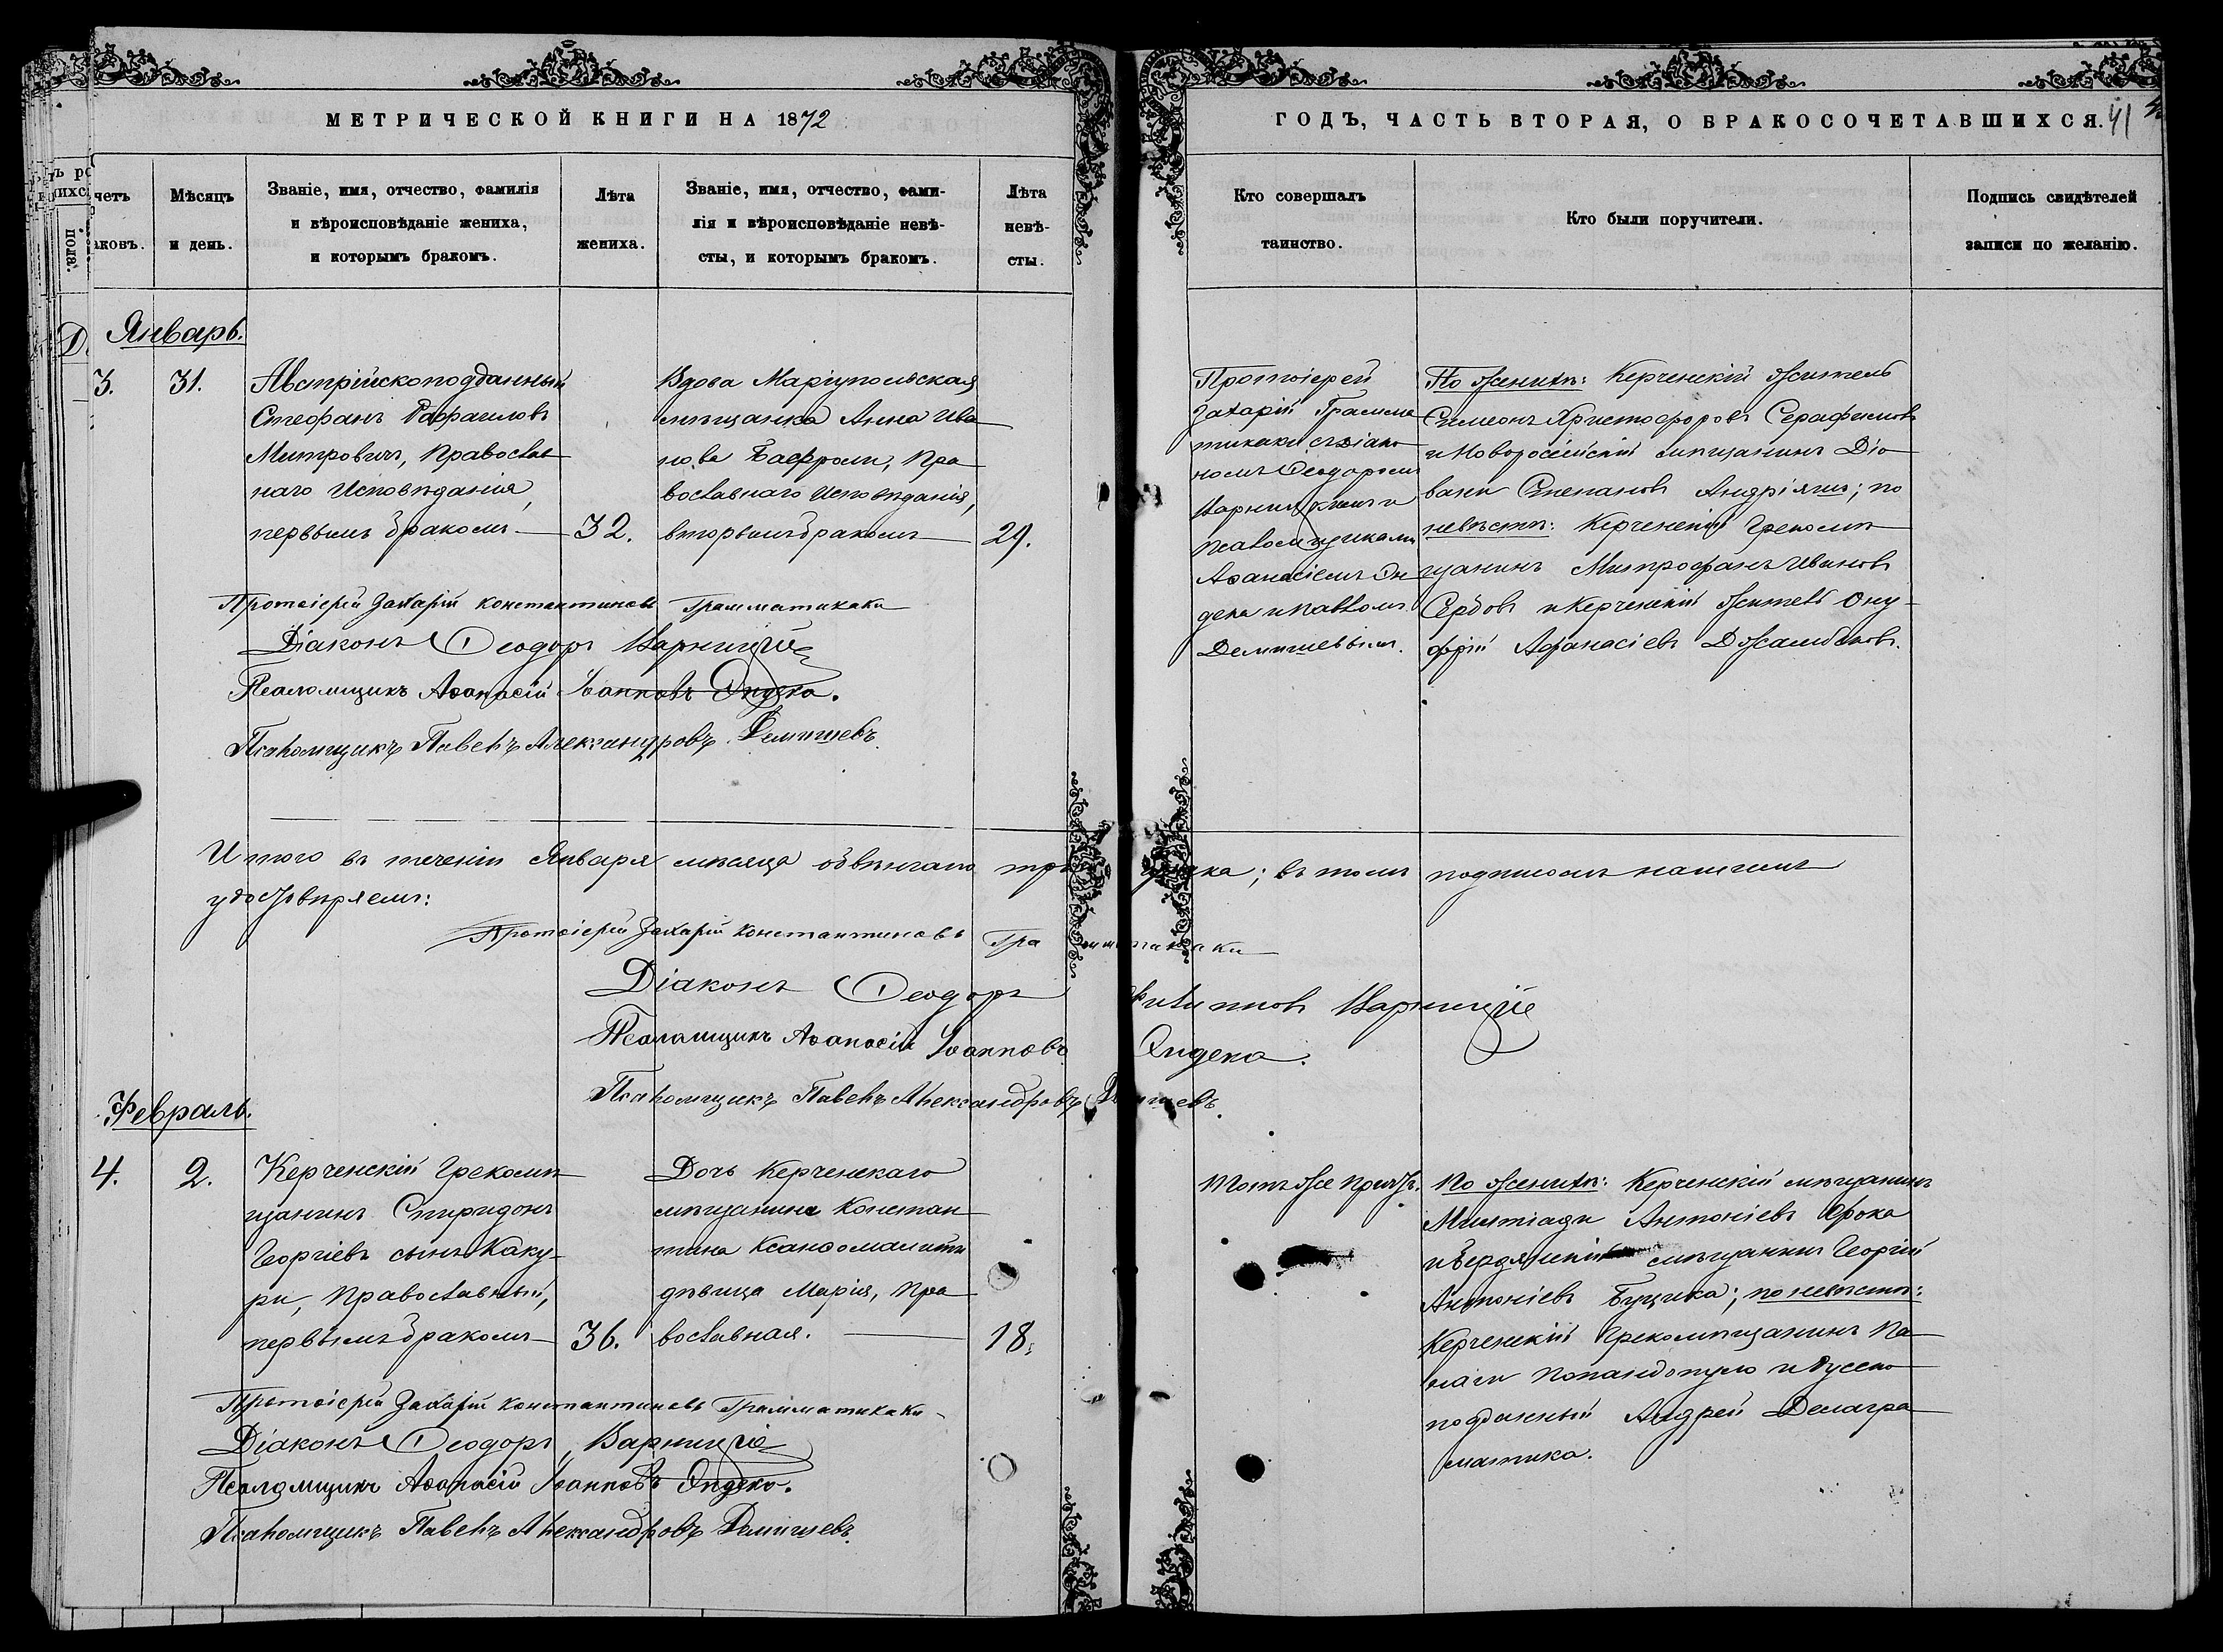 МЕТРИЧЕСКОЙ КНИГИ НА 1872
ГОДЪ, ЧАСТЬ ВТОРАЯ, О БРАКОСОЧЕТАВШИХСЯ.
41
четъ
аковъ.
Мѣсяцъ
и день.
Званіе, имя, отчество, фамилія
и вѣроисповѣданіе жениха,
и которымъ бракомъ.
Лѣта
жениха.
Званіе, имя, отчество, фами-
лія и вѣроисповѣданіе невѣ-
сты, и которымъ бракомъ.
Лѣта
невѣ-
сты.
Кто совершалъ
таинство.
Кто были поручители.
Подпись свидѣтелей
записи по желанію.
Январь.
3.
31.
Австрійскоподданный
Стефанъ Рафаиловъ
Митровичъ, Православ
наго Исповѣданія,
первымъ бракомъ
32.
Вдова Маріупольская
мѣщанка Анна Ива
нова, Пра
вославнаго Исповѣданія,
вторымъ бракомъ
29.
Протоіерей
Захарій Грамма
тикаки съ діако
номъ Ѳеодоромъ
Варницкимъ и
псаломщиками
Аѳанасіемъ Он
дека и Павломъ
Демишевымъ.
По женихѣ: Керченскій житель
Симеонъ Христофоровъ Серафимовъ
и Новороссійскій мѣщанинъ Діо
Степановъ ; по
невѣстѣ: Керченскій Грекомѣ
щанинъ Митрофанъ Ивановъ
Сербовъ и Керченскій житель Ону-
фрій Афанасіевъ
Протоіерей Захарій Константиновъ Грамматикаки
Діаконъ Ѳеодоръ Варницкій
Псаломщикъ Аѳанасій Іоанновъ Ондека.
Псаломщикъ Павелъ Александровъ Демишевъ.
Итого въ теченіи Января мѣсяца обвѣнчано три брака; въ томъ подписомъ нашимъ
удостовѣряемъ:
Протоіерей Захарій Константиновъ Грамматикаки
Діаконъ Ѳеодоръ Филипповъ Варницкій
Псаломщикъ Аѳанасій Іоанновъ Ондека.
Псаломщикъ Павелъ Александровъ Демишевъ.
Февраль.
4.
2.
Керченскій Грекомѣ
щанинъ Спиридонъ
Георгіевъ сынъ Каку-
ри, Православный,
первымъ бракомъ
36.
Дочь Керченскаго
мѣщанина Констан
тина
дѣвица Марія, Пра
вославная.
18.
Тотъ же причтъ.
По женихѣ: Керченскій мѣщанинъ
Милтіади Антоніевъ Фока
и Бердянскій мѣщанинъ Георгій
Антоніевъ ; по невѣстѣ:
Керченскій Грекомѣщанинъ Па
наги Попандопуло и Русско
подданный Андрей Делагра
матика.
Протоіерей Захарій Константиновъ Грамматикаки
Діаконъ Ѳеодоръ Варницкій
Псаломщикъ Аѳанасій Іоанновъ Ондека.
Псаломщикъ Павелъ Александровъ Демишевъ.